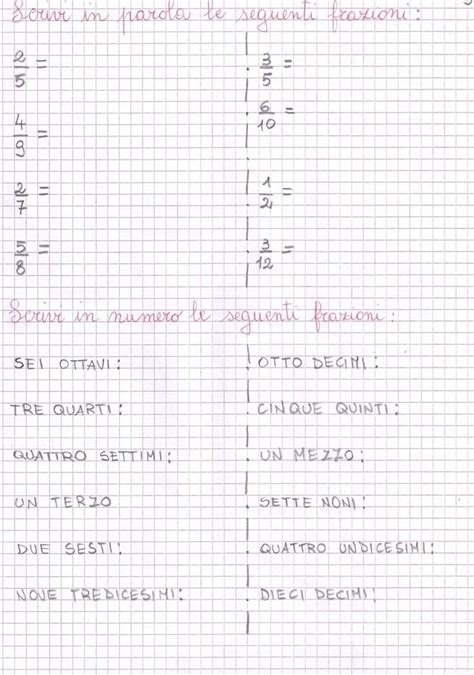 Scrivi in parola le seguenti frazioni:
2/5 = 3/5 =
4/9 = 6/10 =
2/7 = 1/2 =
5/8 = 3/12 =
Scrivi in numero le seguenti frazioni:
SEI OTTAVI: OTTO DECIMI:
TRE QUARTI: CINQUE QUINTI:
QUATTRO SETTIMI: UN MEZZO:
UN TERZO SETTE NONI:
DUE SESTI: QUATTRO UNDICESIMI:
NOVE TREDICESIMI: DIECI DECIMI: